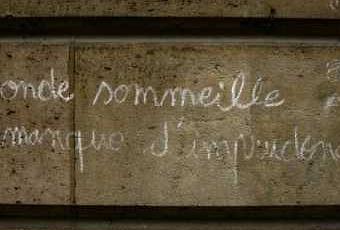 onde sommeille
manque d'imprudenc